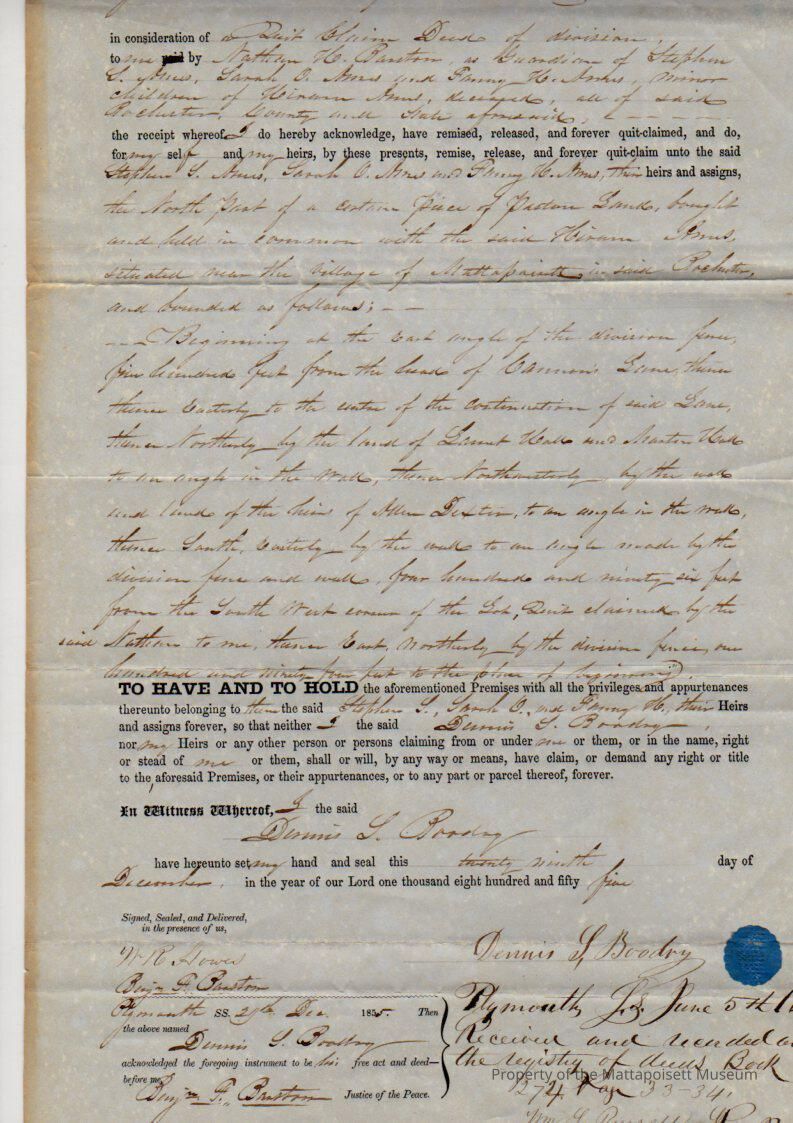 in consideration of a Quit Claim Deed of division,
to me paid by Nathan H. Barstow, as Guardian of Stephen
S. Ames, Sarah O. Ames and Fanny H. Ames, minor
children of Hiram Ames, deceased, all of said
Rochester, County and State aforesaid,
the receipt whereof I do hereby acknowledge, have remised, released, and forever quit-claimed, and do,
for my self and my heirs, by these presents, remise, release, and forever quit-claim unto the said
Stephen S. Ames, Sarah O. Ames and Fanny H. Ames, their heirs and assigns,
the North Part of a certain piece of Pasture Land, bought
and held in common with the said Hiram Ames,
situated near the village of Mattapoisett, in said Rochester,
and bounded as follows; - -
Beginning at the East angle of the division fence,
five hundred feet from the head of Cannon's Lane, thence
thence Easterly to the centre of the continuation of said Lane,
thence Northerly by the land of Hall and Martin Hall
to an angle in the Wall, thence Northwesterly by the wall
and land of the heirs of Allen Dexter, to an angle in the wall,
thence South, Easterly by the wall to an angle made by the
division fence and wall, four hundred and ninety six feet
from the South West corner of the Lot, Quit claimed by the
said Nathan to me, thence East, Northerly by the division fence, one
hundred and ninety four feet to the place of beginning.
TO HAVE AND TO HOLD the aforementioned Premises with all the privileges and appurtenances
thereunto belonging to them the said Stephen S., Sarah O., and Fanny H., their Heirs
and assigns forever, so that neither I the said Dennis S. Boodry
nor my Heirs or any other person or persons claiming from or under me or them, or in the name, right
or stead of me or them, shall or will, by any way or means, have claim, or demand any right or title
to the aforesaid Premises, or their appurtenances, or to any part or parcel thereof, forever.
In Witness Whereof, I the said
Dennis S. Boodry
have hereunto set my hand and seal this twenty ninth day of
December, in the year of our Lord one thousand eight hundred and fifty five
Signed, Sealed, and Delivered,
in the presence of us,
W R Howes
Benj. F. Barstow
Dennis S. Boodry
Plymouth SS. 29th Dec. 1855. Then
the above named
Dennis S. Boodry
acknowledged the foregoing instrument to be his free act and deed—
before me,
Benj. F. Barstow Justice of the Peace.
Plymouth, SS. June 5th
Received and recorded
the registry of deeds Book
274 Page 33-34.
Property of the Mattapoisett Museum